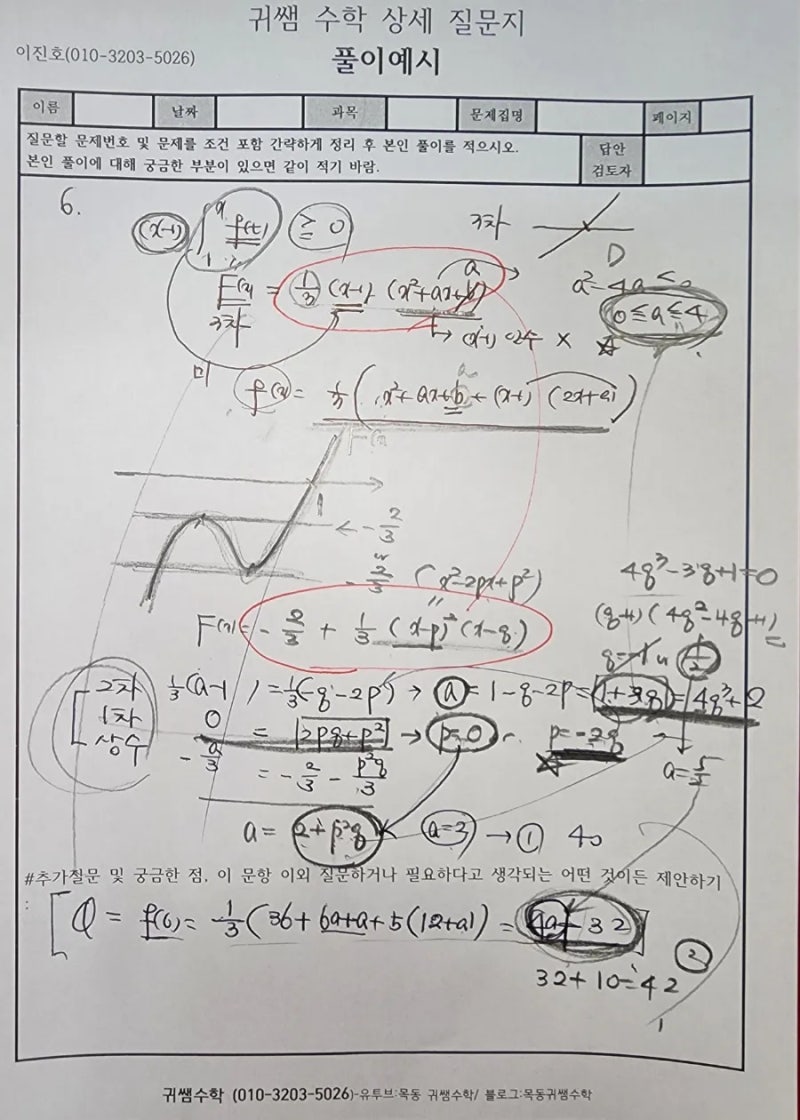 귀쌤 수학 상세 질문지
이진호(010-3203-5026)
풀이예시
이름 날짜 과목 문제집명 페이지
질문할 문제번호 및 문제를 조건 포함 간략하게 정리 후 본인 풀이를 적으시오.
본인 풀이에 대해 궁금한 부분이 있으면 같이 적기 바람.
답안
검토자
6.
(x-1) ∫ f(t) ≥ 0
3차
D
F(x) = 1/3 (x-1) (x²+ax+b) a
3차
→ (x-1) 인수 ×
a²-4a ≤0
0≤a≤4
☆
미
f(x) = 1/3 ( x²+ax+b + (x-1) (2x+a) )
a
F(x)
1
← -2/3
-2/3
(x²-2px+p²)
"
F(x) = -2/3 + 1/3 (x-p)² (x-q)
4q³-3q+1=0
(q+1)(4q²-4q+1)
q=-1 1/2
2차 1/3(a-1) = 1/3(-q-2p) → a = 1-q-2p = 1+3q = 4q³+2
1차 0 = 2pq+p² → p=0 p=-2q
☆
상수 -a/3 = -2/3 - p²q/3
a=5/2
a = 2+p²q a=2 → ① 40
#추가질문 및 궁금한 점, 이 문항 이외 질문하거나 필요하다고 생각되는 어떤 것이든 제안하기
:
Q = f(6) = 1/3 (36+6a+a+5(12+a)) = 4a+32
②
32+10=42
귀쌤수학 (010-3203-5026)-유투브:목동 귀쌤수학/ 블로그:목동귀쌤수학